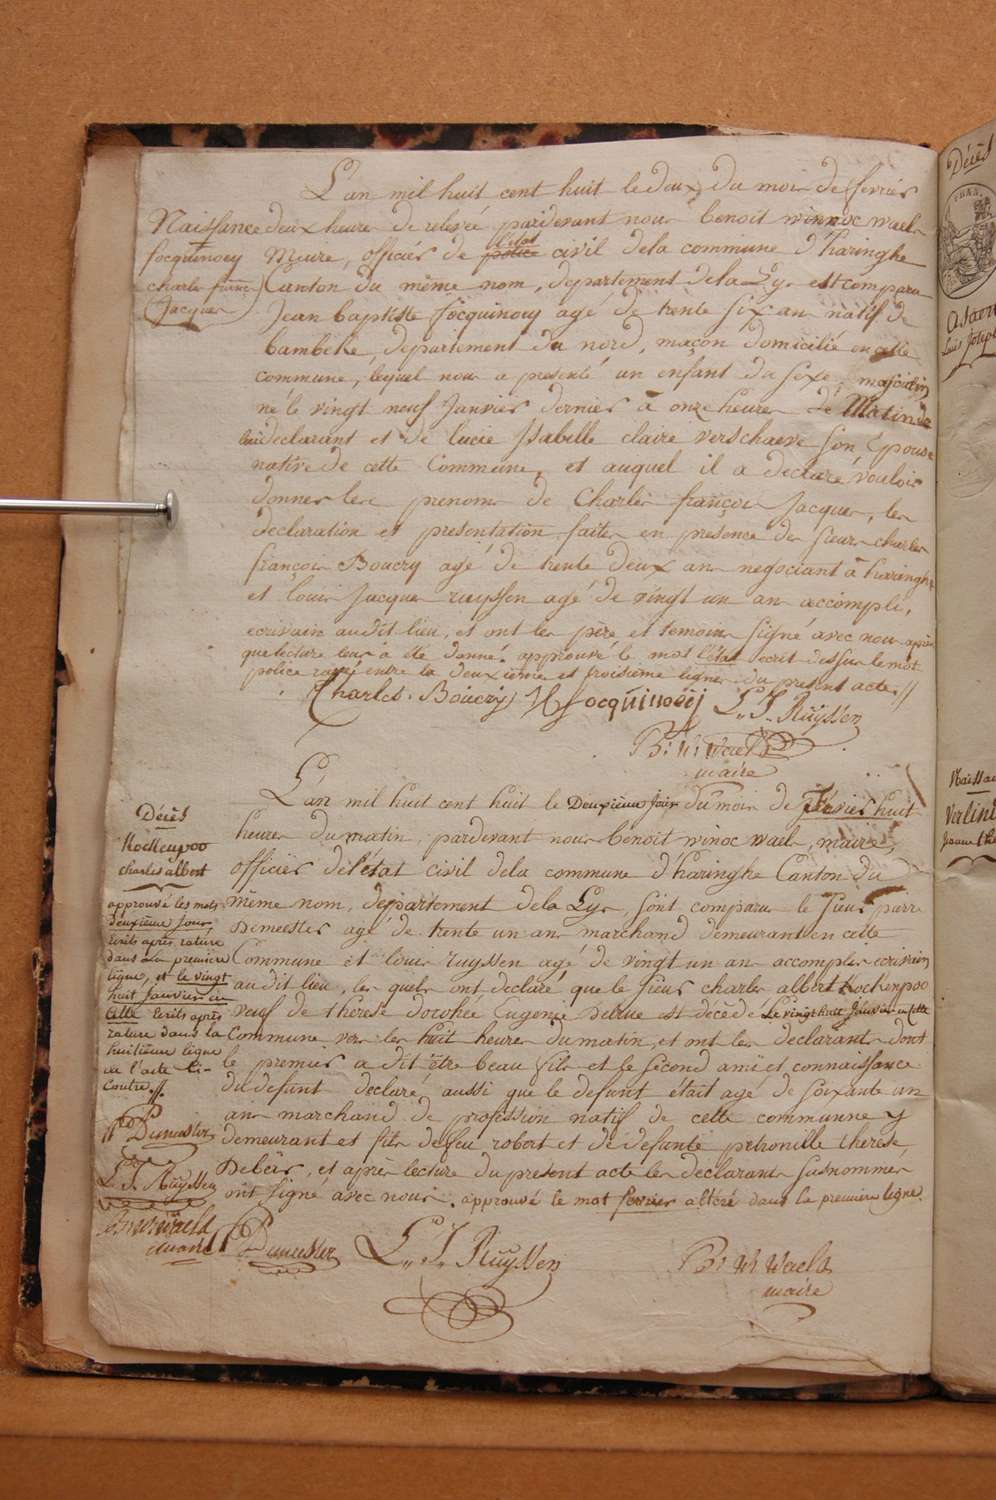 L'an mil huit cent huit le deux du mois de fevrier
Naissance
focquinoey
charles françois
Jacques
deux heures de relevée pardevant nous benoit winnoc waels
Meire, officier de police l'état civil de la commune d'haringhe
Canton du même nom, departement de la Lys est comparu
Jean baptiste focquinoey agé de trente six ans natif de
bambeke, departement du nord, maçon domicilié en cette
commune, lequel nous a presenté un enfant du sexe masculin
né le vingt neuf Janvier dernier à onze heures de Matin de
lui declarant et de lucie Isabelle claire verschaeve son Epouse
native de cette Commune, et auquel il a declaré vouloir
donner les prenoms de Charles françois Jacques, les
declaration et presentation faites en presence des sieurs charles
françois Boucry agé de trente deux ans negociant à haringhe
et louis Jacques ruyssen agé de vingt un ans accomplis,
ecrivain audit lieu, et ont les père et temoins signé avec nous après
que lecture leur a été donné. approuvé le mot l'état ecrit dessus le mot
police rayé entre la deuxième et troisième lignes du present acte.//
Charles Boucry focquinoeij L. J. Ruyssen
B. W. Waels
maire
Décès
Kockenpoo
charles albert
approuvé les mots
deuxième jour
écrits après rature
dans la première
ligne, et le vingt
huit Janvier en
cette écrits après
rature dans la
huitième ligne
de l'acte ci-
contre.//
P Demeester
L. J. Ruyssen
B W Waels
maire
L'an mil huit cent huit le Deuxième jour du mois de fevrier huit
heures du matin, pardevant nous benoit winoc waels, maire,
officier de l'état civil de la commune d'haringhe Canton du
même nom, departement de la Lys, sont comparus le sieur pierre
Demeester agé de trente un ans marchand demeurant en cette
Commune et louis ruyssen agé de vingt un ans accomplis ecrivain
audit lieu, les quels ont declaré que le sieur charles albert Kockenpoo
veuf de therese dorothée Eugenie Debrue est décédé le vingt huit Janvier en cette
Commune vers les huit heures du matin, et ont les declarants dont
le premier a dit être beau fils et le second ami et connaissance
du defunt declaré aussi que le defunt était agé de soixante un
ans marchand de profession natif de cette commune y
demeurant et fils de feu robert et de defunte petronille therese
Debeir, et après lecture du present acte les declarants susnommés
ont signé avec nous. approuvé le mot fevrier altéré dans la première ligne.
P Demeester L. J. Ruyssen B. W. Waels
maire
Décès
Louis Joseph
Naissance